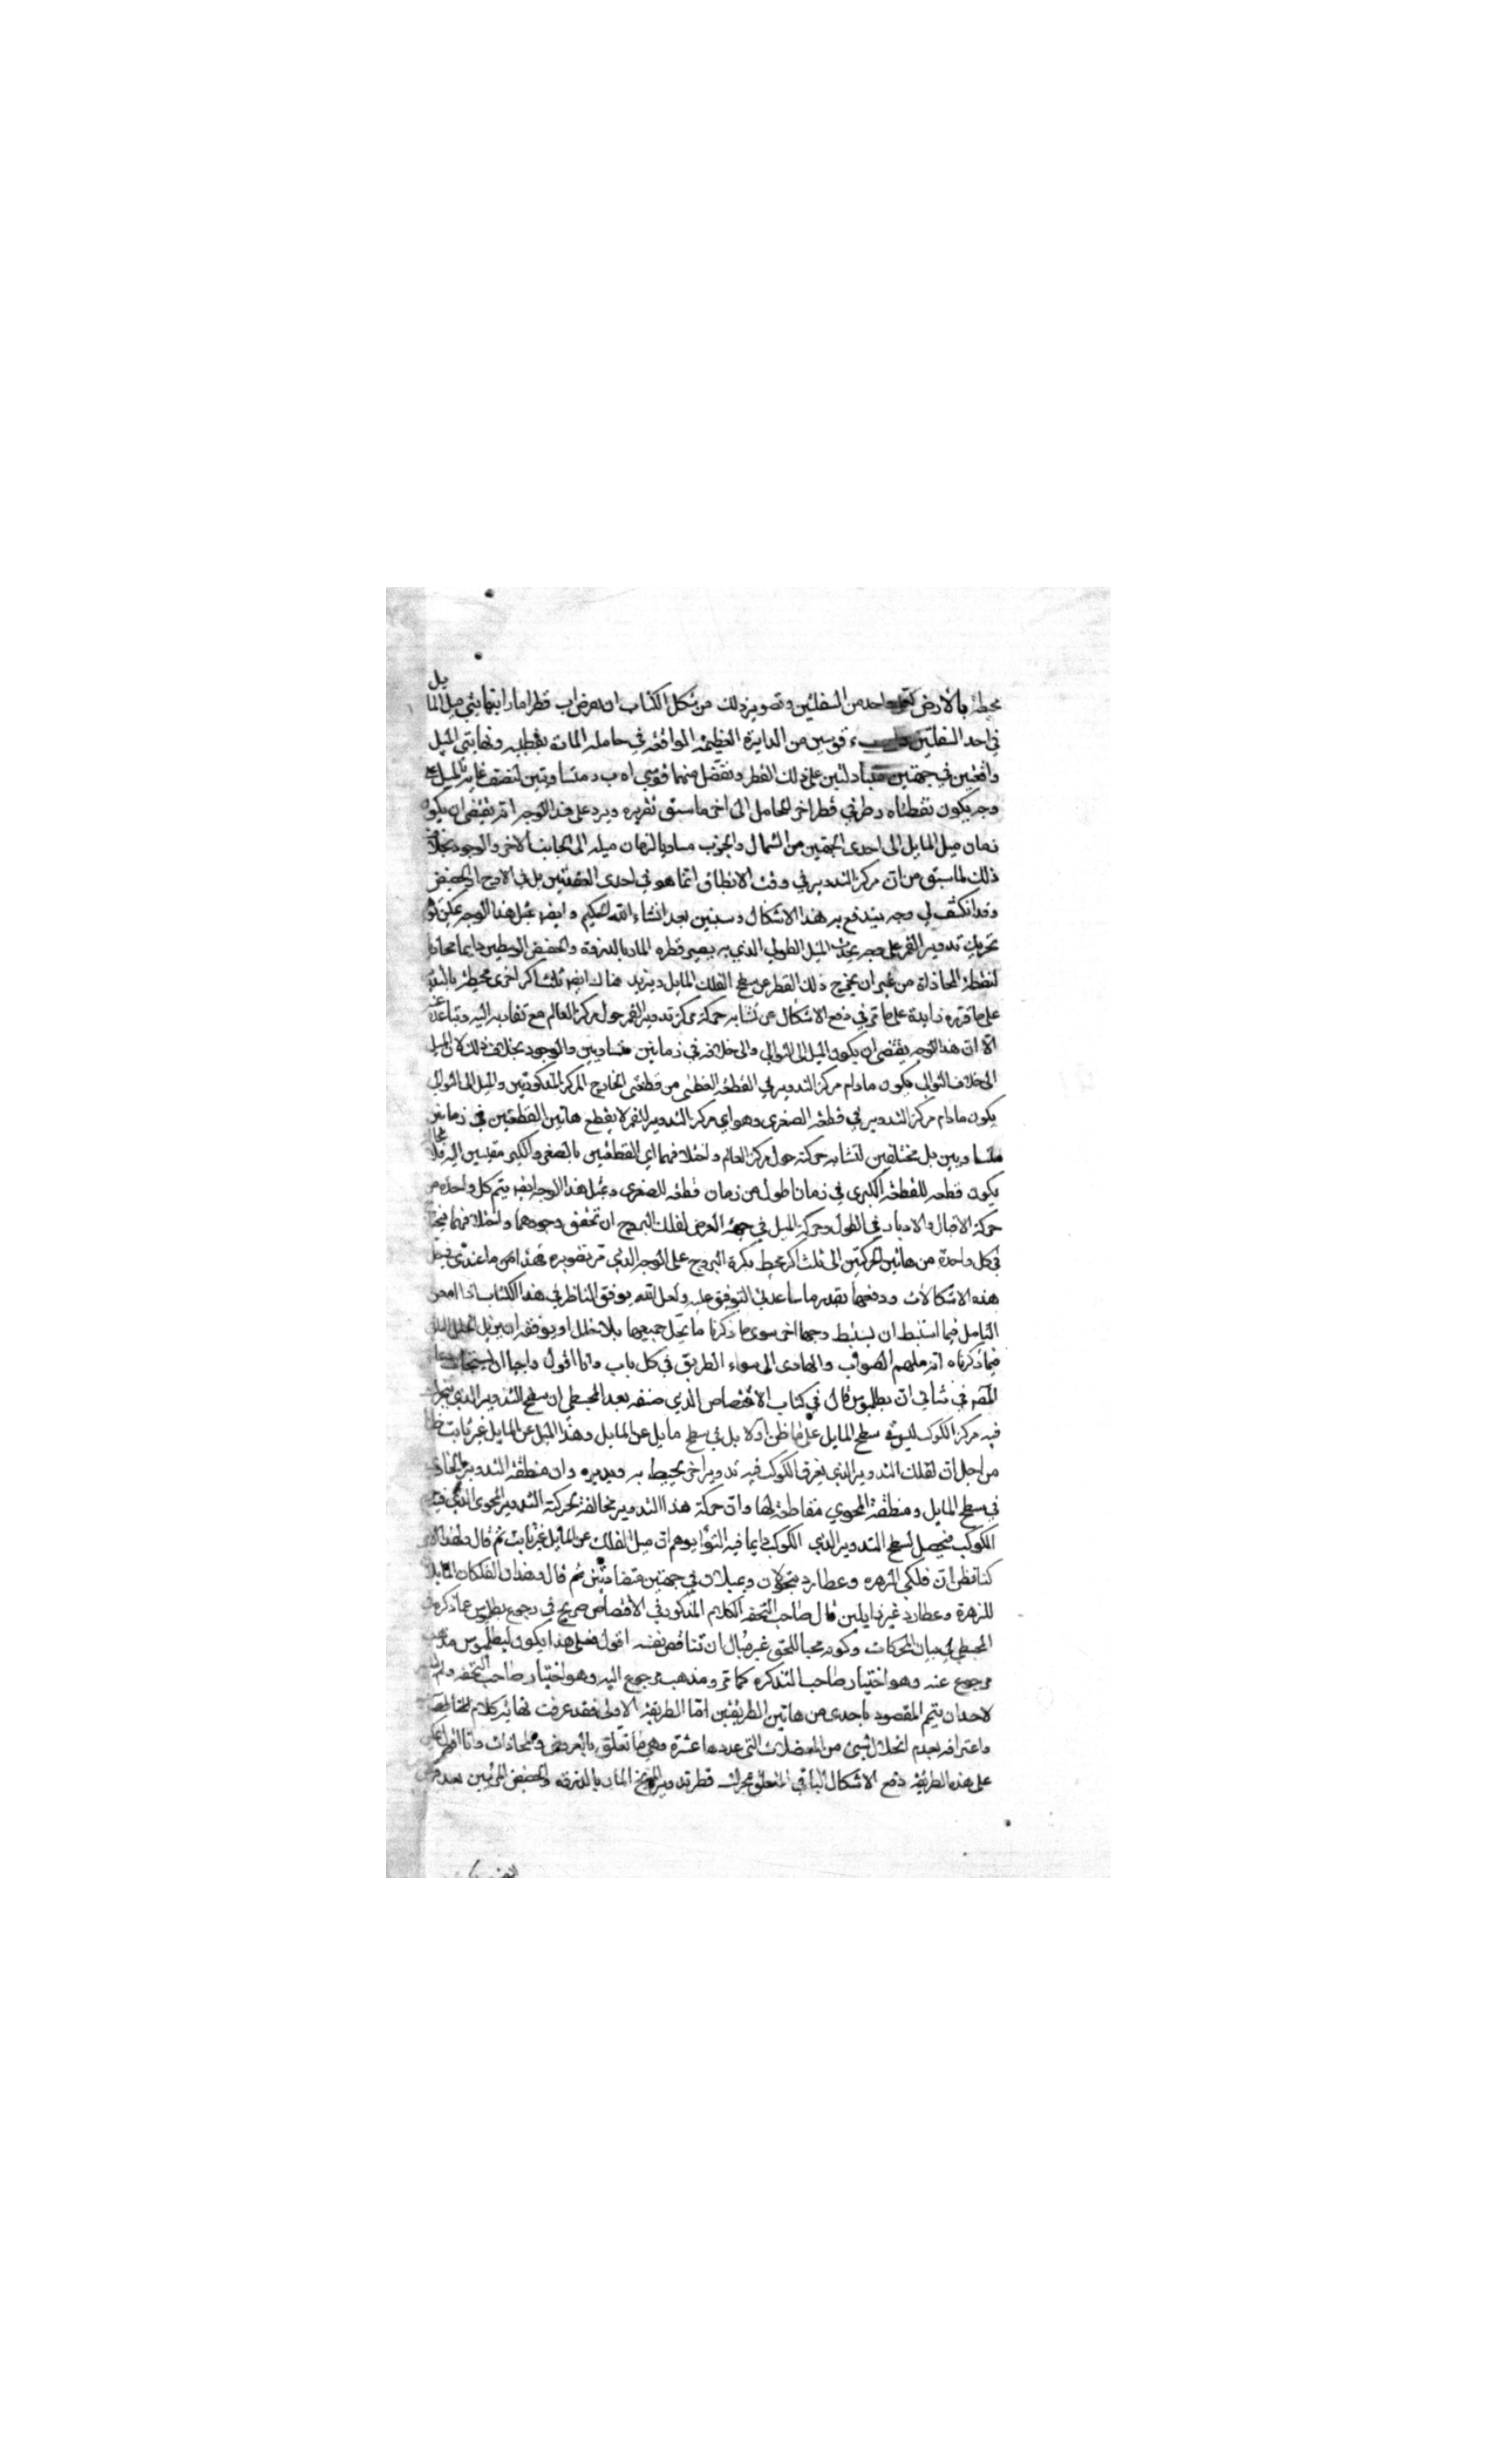 محيطة بالأرض لكل واحد من السفليين وتصوير ذلك من شكل الكتاب ان نفرض اب قطرا مارا بنهايتي ميل المايل
في احد السفليين قوسين من الدايرة العظيمة الواقعة في حامله المارة بقطبيه ونهايتي الميل
واقعتين في جهتين متبادلتين على ذلك القطر ونفصل منهما قوسي اه ب د متساويتين لنصف غاية الميل
وجه يكون نقطتاه د طرفي قطر اخر للحامل الى اخر ما سبق تقريره ويرد على هذا الوجه انه يقتضي ان يكون
زمان ميل المايل الى احدى الجهتين من الشمال والجنوب مساويا لزمان ميله الى الجانب الاخر والوجود بخلاف
ذلك لما سبق من ان مركز التدوير في وقت الانطباق انما هو في احدى العقدتين بل في الاوج او الحضيض
وقد انكشف لي وجه يندفع به هذا الاشكال وسنبين بعد انشاء الله الحكيم وايضا بمثل هذا الوجه يمكن
تحريك تدوير القمر على وجه يحدث الميل الطولي الذي به يصير قطره المار بالذروة والحضيض الوسطين دايما محاذيا
لنقطة المحاذاة من غير ان يخرج ذلك القطر عن سطح الفلك المايل ويزيد هناك ايضا ثلث اكر اخرى محيطة بالتدوير
على ما قرره زايدة على ما مر في دفع الاشكال عن تشابه حركة مركز تدوير القمر حول مركز العالم مع تقاربه اليه وتباعده عنه
الا ان هذا الوجه يقتضي ان يكون الميل الى التوالي والى خلافه في زمانين متساويين والوجود بخلاف ذلك لان الميل
الى خلاف التوالي يكون ما دام مركز التدوير في القطعة العظمى من قطعتي الخارج المركز المذكورتين والميل الى التوالي
يكون ما دام مركز التدوير في قطعته الصغرى وهو اي مركز التدوير للقمر لا يقطع هاتين القطعتين في زمانين
متساويين بل مختلفين لتشابه حركته حول مركز العالم واختلافهما اي القطعتين بالصغر والكبر مقيسين اليه فلا محالة
يكون قطعه للقطعة الكبرى في زمان اطول من زمان قطعه للصغرى وبمثل هذا الوجه ايضا يتم كل واحدة من
حركة الاقبال والادبار في الطول وحركة الميل في جهة العرض لفلك البروج ان تحقق وجودهما واختلافهما فيحتاج
في كل واحدة من هاتين الحركتين الى ثلث اكر محيط بكرة البروج على الوجه الذي مر تصويره فهذا اخر ما عندي في حل
هذه الاشكالات ودفعها بقدر ما ساعدني التوفيق عليه ولعل الله يوفق الناظر في هذا الكتاب اذا امعن
التامل فيما استنبط ان يستنبط وجها اخر سوى ما ذكرنا ما يحل جميعها بلا خلل او يوفقه ان يزيل الخلل
فيما ذكرناه انه ملهم الصواب والهادى الى سواء الطريق في كل باب وانا اقول راجيا ان يستجاب دعاء
المصنف في شاني ان بطلميوس قال في كتاب الاقتصاص الذي صنفه بعد المجسطي ان سطح التدوير الذي يتحرك
فيه مركز الكوكب ليس في سطح المايل على ما ظن اولا بل في سطح مايل عن المايل وهذا الميل عن المايل غير ثابت
من اجل ان لفلك التدوير الذي يغرق الكوكب فيه تدويرا اخر يحيط به ويديره وان منطقة التدوير الحاوي
في سطح المايل ومنطقة المحوي مقاطعة لها وان حركة هذا التدوير مخالفة لحركة التدوير المحوى الذي فيه
الكوكب فيحصل لسطح التدوير الذي الكوكب دايما فيه التواء يوهم ان ميل الفلك عن المايل غير ثابت ثم قال ولهذا
كنا نظن ان فلكي الزهره وعطارد يتحركان ويميلان في جهتين متضادتين ثم قال وهذان الفلكان المايلان
للزهرة وعطارد غير زايلين قال صاحب التحفه الكلام المذكور في الاقتصاص صريح في رجوع بطلميوس عما ذكره في
المجسطي في بيان الحركات وكونه محبا للحق غير مبال ان تناقض نفسه اقول فعلى هذا يكون لبطلميوس مذهب
مرجوع عنه وهو اختيار صاحب التذكره كما مر ومذهب مرجوع اليه وهو اختيار صاحب التحفه ولم
لاحد ان يتمم المقصود باحدى من هاتين الطريقتين اما الطريقة الاولى فقد عرفت نهاية كلام
واعترافه بعدم انحلال شيئ من المعضلات التي عددها عشرة وهي ما تعلق بالعروض والمحاذات وانا
على هذه الطريقة دفع الاشكال الباقي المتعلق بتحرك قطر تدوير المريخ المار بالذروة والحضيض المرئيين بعد